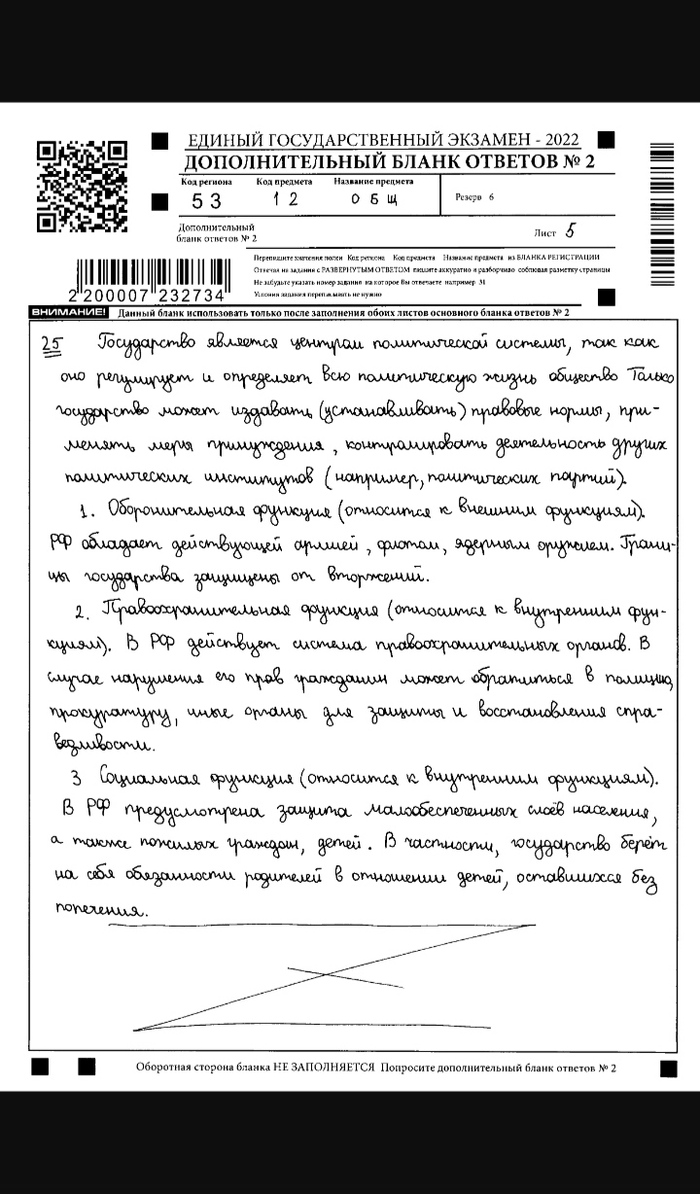 ЕДИНЫЙ ГОСУДАРСТВЕННЫЙ ЭКЗАМЕН - 2022
ДОПОЛНИТЕЛЬНЫЙ БЛАНК ОТВЕТОВ № 2
Код региона Код предмета Название предмета
53 12 ОБЩ
Резерв 6
Дополнительный
бланк ответов № 2
Лист 5
Перепишите значения полей Код региона Код предмета Название предмета из БЛАНКА РЕГИСТРАЦИИ
Отвечая на задания с РАЗВЕРНУТЫМ ОТВЕТОМ пишите аккуратно и разборчиво соблюдая разметку страницы
Не забудьте указать номер задания на которое Вы отвечаете например 31
Условия задания переписывать не нужно
2 200007 232734
ВНИМАНИЕ! Данный бланк использовать только после заполнения обоих листов основного бланка ответов № 2
25 Государство является центром политической системы, так как
оно регулирует и определяет всю политическую жизнь общество Только
государство может издавать (устанавливать) правовые нормы, при-
менять меры принуждения, контролировать деятельность других
политических институтов (например, политических партий).
1. Оборонительная функция (относится к внешним функциям).
РФ обладает действующей армией, флотом, ядерным оружием. Грани-
цы государства защищены от вторжений.
2. Правоохранительная функция (относится к внутренним фун-
кциям). В РФ действует система правоохранительных органов. В
случае нарушения его прав гражданин может обратиться в полицию,
прокуратуру, иные органы для защиты и восстановления спра-
ведливости.
3 Социальная функция (относится к внутренним функциям).
В РФ предусмотрена защита малообеспеченных слоёв населения,
а также пожилых граждан, детей. В частности, государство берёт
на себя обязанности родителей в отношении детей, оставшихся без
попечения.
Оборотная сторона бланка НЕ ЗАПОЛНЯЕТСЯ Попросите дополнительный бланк ответов № 2